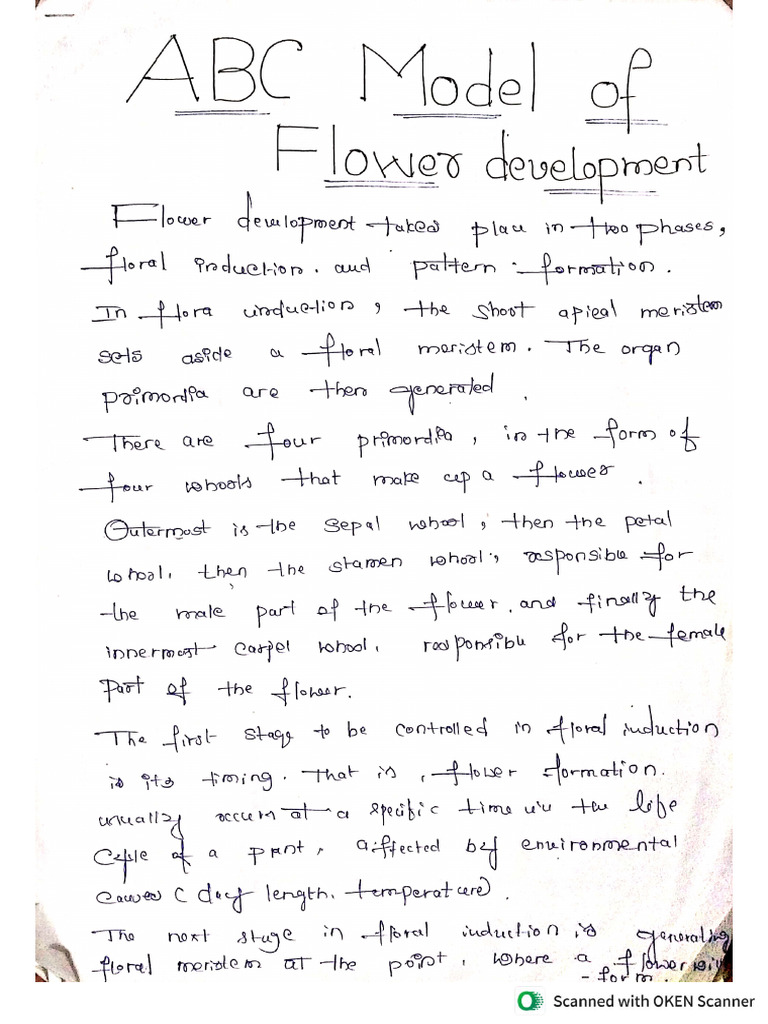 ABC Model of
Flower development
Flower development takes place in two phases,
floral induction. and pattern formation.
In flora induction, the shoot apical meristem
sets aside a floral meristem. The organ
primordia are then generated.
There are four primordia, in the form of
four whools that make up a flower.
Outermost is the sepal whool, then the petal
whool. then the stamen whool, responsible for
the male part of the flower. and finally the
innermost carpel whool. responsible for the female
part of the flower.
The first stage to be controlled in floral induction
is its timing. That is, flower formation.
usually occurs at a specific time in the life
Cycle of a plant, affected by environmental
causes (day length. temperature).
The next stage in floral induction is generating
floral meristem at the point, where a flower will
form.
Scanned with OKEN Scanner